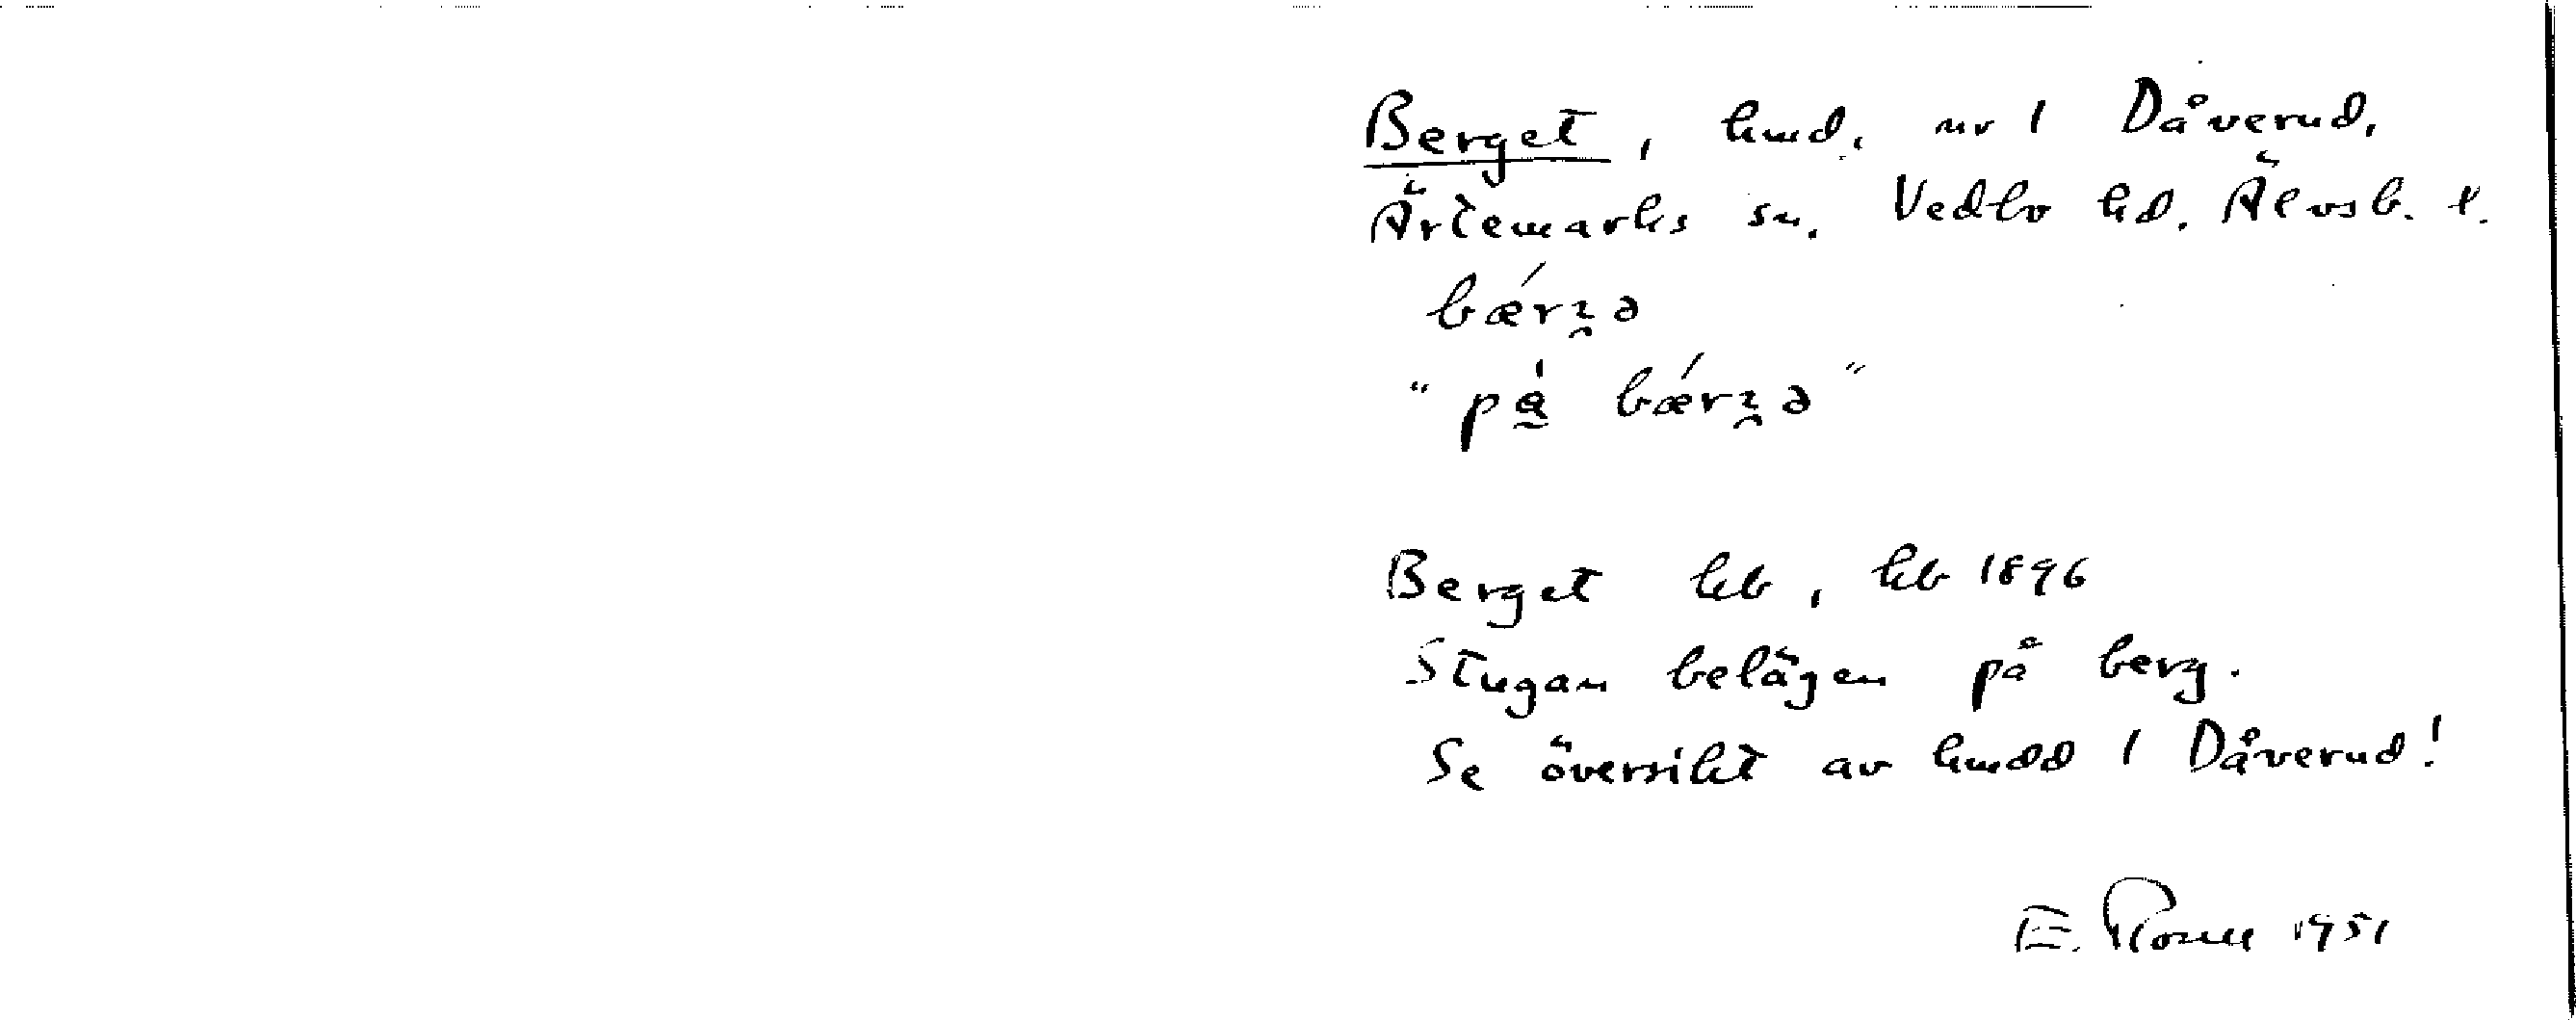 Berget, hmd. nr 1 Dåverud,
Ärtemarks sn. Vedbo hd. Älvsb. l.
bǽrʒə
"på bǽrʒə"
Berget hb, kb 1896
Stugan belägen på berg.
Se översikt av hmdd 1 Dåverud!
E. 1951